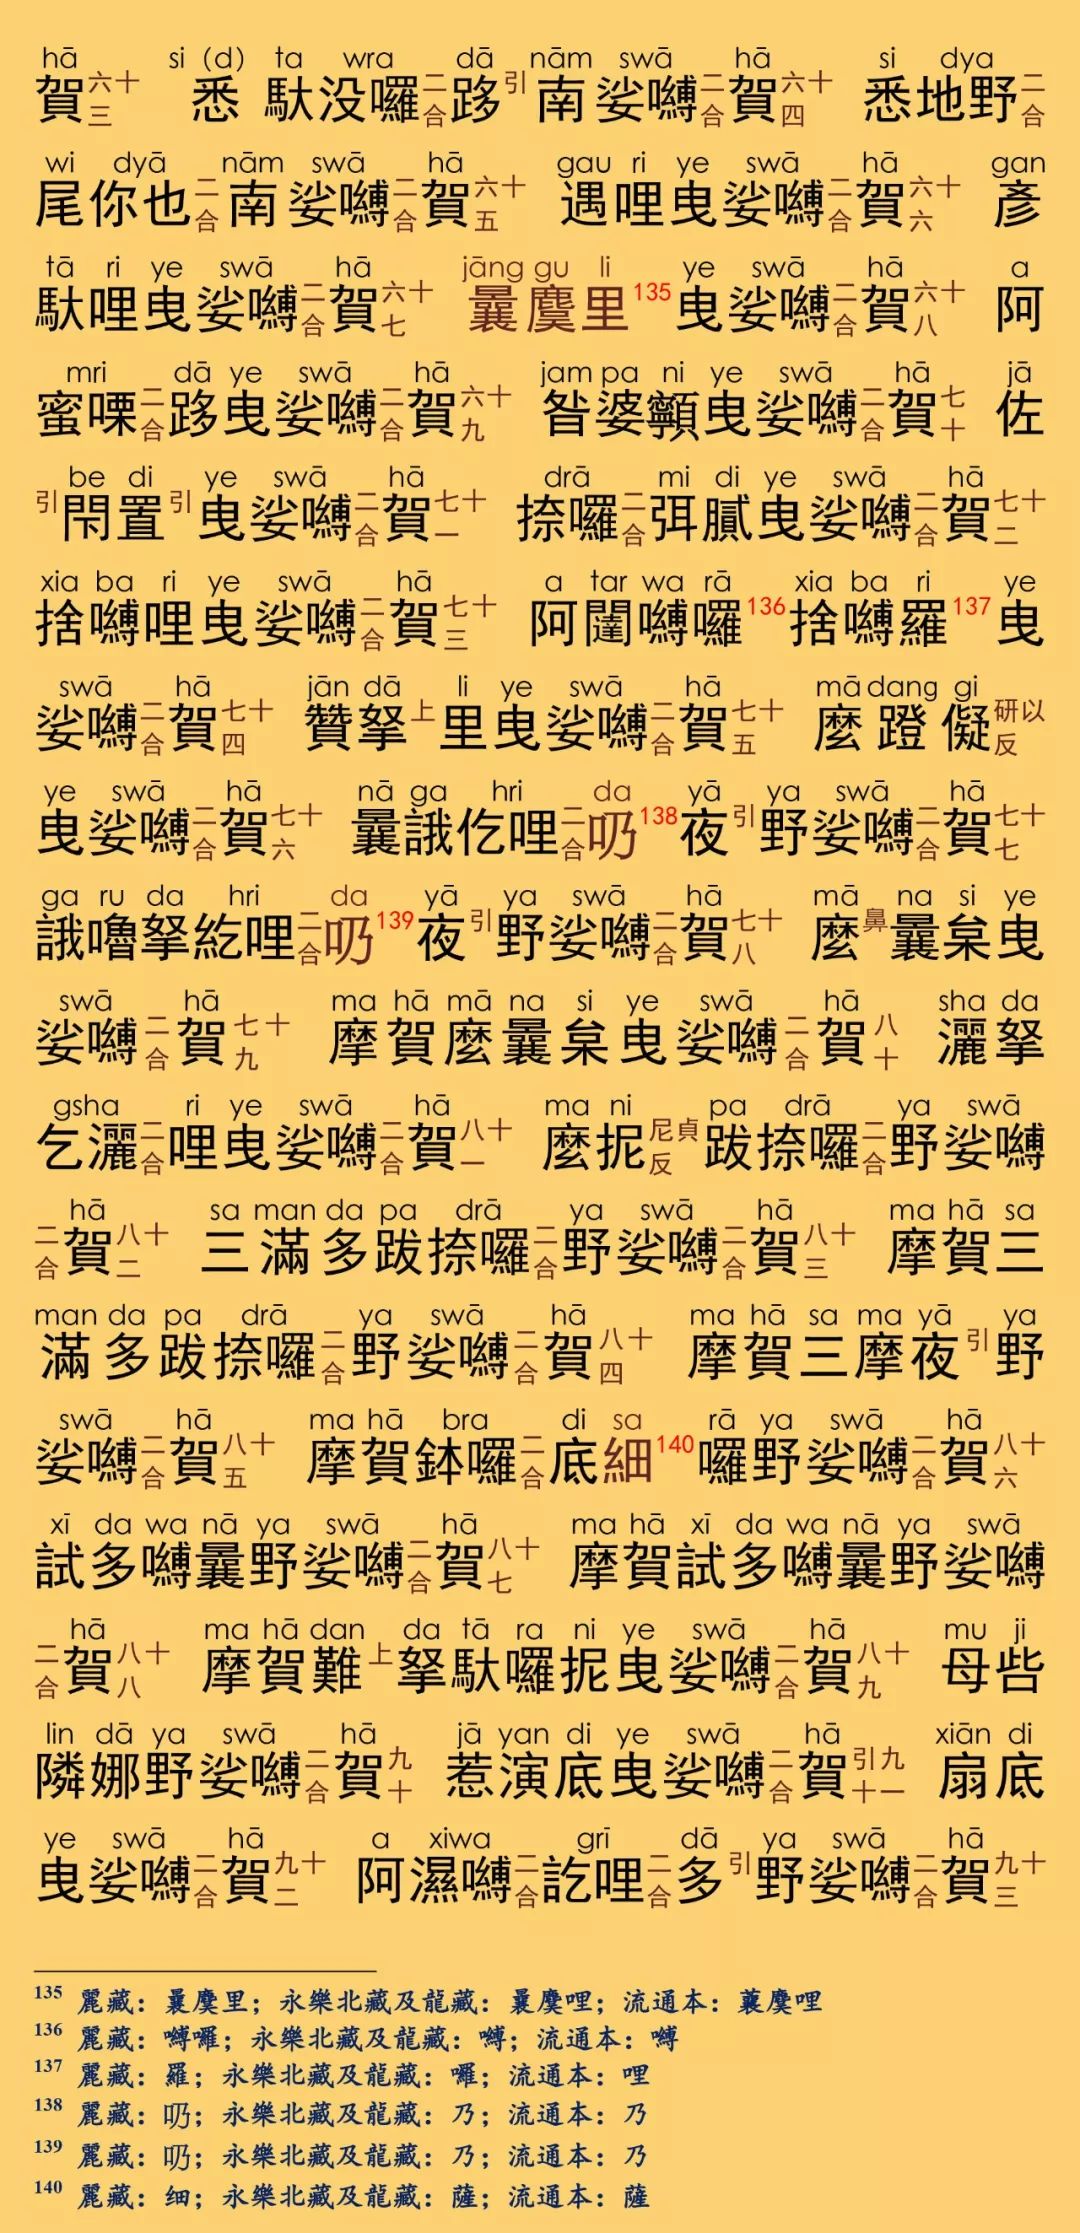 hā si（d）ta wra dā nām swā hā si dya
賀六十三 悉 馱没囉二合跢引南娑嚩二合賀六十四 悉地野二合
wi dyā nām swā hā gau ri ye swā hā gan
尾你也二合南娑嚩二合賀六十五 遇哩曳娑嚩二合賀六十六 彥
tā ri ye swā hā jāng gu li ye swā hā a
馱哩曳娑嚩二合賀六十七 曩麌里135曳娑嚩二合賀六十八 阿
mri dā ye swā hā jam pa ni ye swā hā jā
蜜㗚二合跢曳娑嚩二合賀六十九 昝婆顊曳娑嚩二合賀七十 佐
be di ye swā hā drā mi di ye swā hā
引閇置引曳娑嚩二合賀七十一 捺囉二合弭膩曳娑嚩二合賀七十二
xia ba ri ye swā hā a tar wa rā xia ba ri ye
捨嚩哩曳娑嚩二合賀七十三 阿闥嚩囉136捨嚩羅137曳
swā hā jān dā li ye swā hā mā dang gi
娑嚩二合賀七十四 贊拏上里曳娑嚩二合賀七十五 麼蹬儗研以反
ye swā hā nā ga hri da yā ya swā hā
曳娑嚩二合賀七十六 曩誐仡哩二合㕶138夜引野娑嚩二合賀七十七
ga ru da hri da yā ya swā hā mā na si ye
誐嚕拏紇哩二合㕶139夜引野娑嚩二合賀七十八 麼鼻曩枲曳
swā hā ma hā mā na si ye swā hā sha da
娑嚩二合賀七十九 摩賀麼曩枲曳娑嚩二合賀八十 灑拏
gsha ri ye swā hā ma ni pa drā ya swā
乞灑二合哩曳娑嚩二合賀八十一 麼抳尼貞反跋捺囉二合野娑嚩
hā sa man da pa drā ya swā hā ma hā sa
二合賀八十二 三滿多跋捺囉二合野娑嚩二合賀八十三 摩賀三
man da pa drā ya swā hā ma hā sa ma yā ya
滿多跋捺囉二合野娑嚩二合賀八十四 摩賀三摩夜引野
swā hā ma hā bra di sa rā ya swā hā
娑嚩二合賀八十五 摩賀鉢囉二合底細140囉野娑嚩二合賀八十六
xī da wa nā ya swā hā ma hā xī da wa nā ya swā
試多嚩曩野娑嚩二合賀八十七 摩賀試多嚩曩野娑嚩
hā ma hā dan da tā ra ni ye swā hā mu ji
二合賀八十八 摩賀難上拏馱囉抳曳娑嚩二合賀八十九 母呰
lin dā ya swā hā jā yan di ye swā hā xiān di
隣娜野娑嚩二合賀九十 惹演底曳娑嚩二合賀引九十一 扇底
ye swā hā a xiwa grī dā ya swā hā
曳娑嚩二合賀九十二 阿濕嚩二合訖哩二合多引野娑嚩二合賀九十三
135 麗藏：曩麌里；永樂北藏及龍藏：曩麌哩；流通本：蘘麌哩
136 麗藏：嚩囉；永樂北藏及龍藏：嚩；流通本：嚩
137 麗藏：羅；永樂北藏及龍藏：囉；流通本：哩
138 麗藏：㕶；永樂北藏及龍藏：乃；流通本：乃
139 麗藏：㕶；永樂北藏及龍藏：乃；流通本：乃
140 麗藏：细；永樂北藏及龍藏：薩；流通本：薩